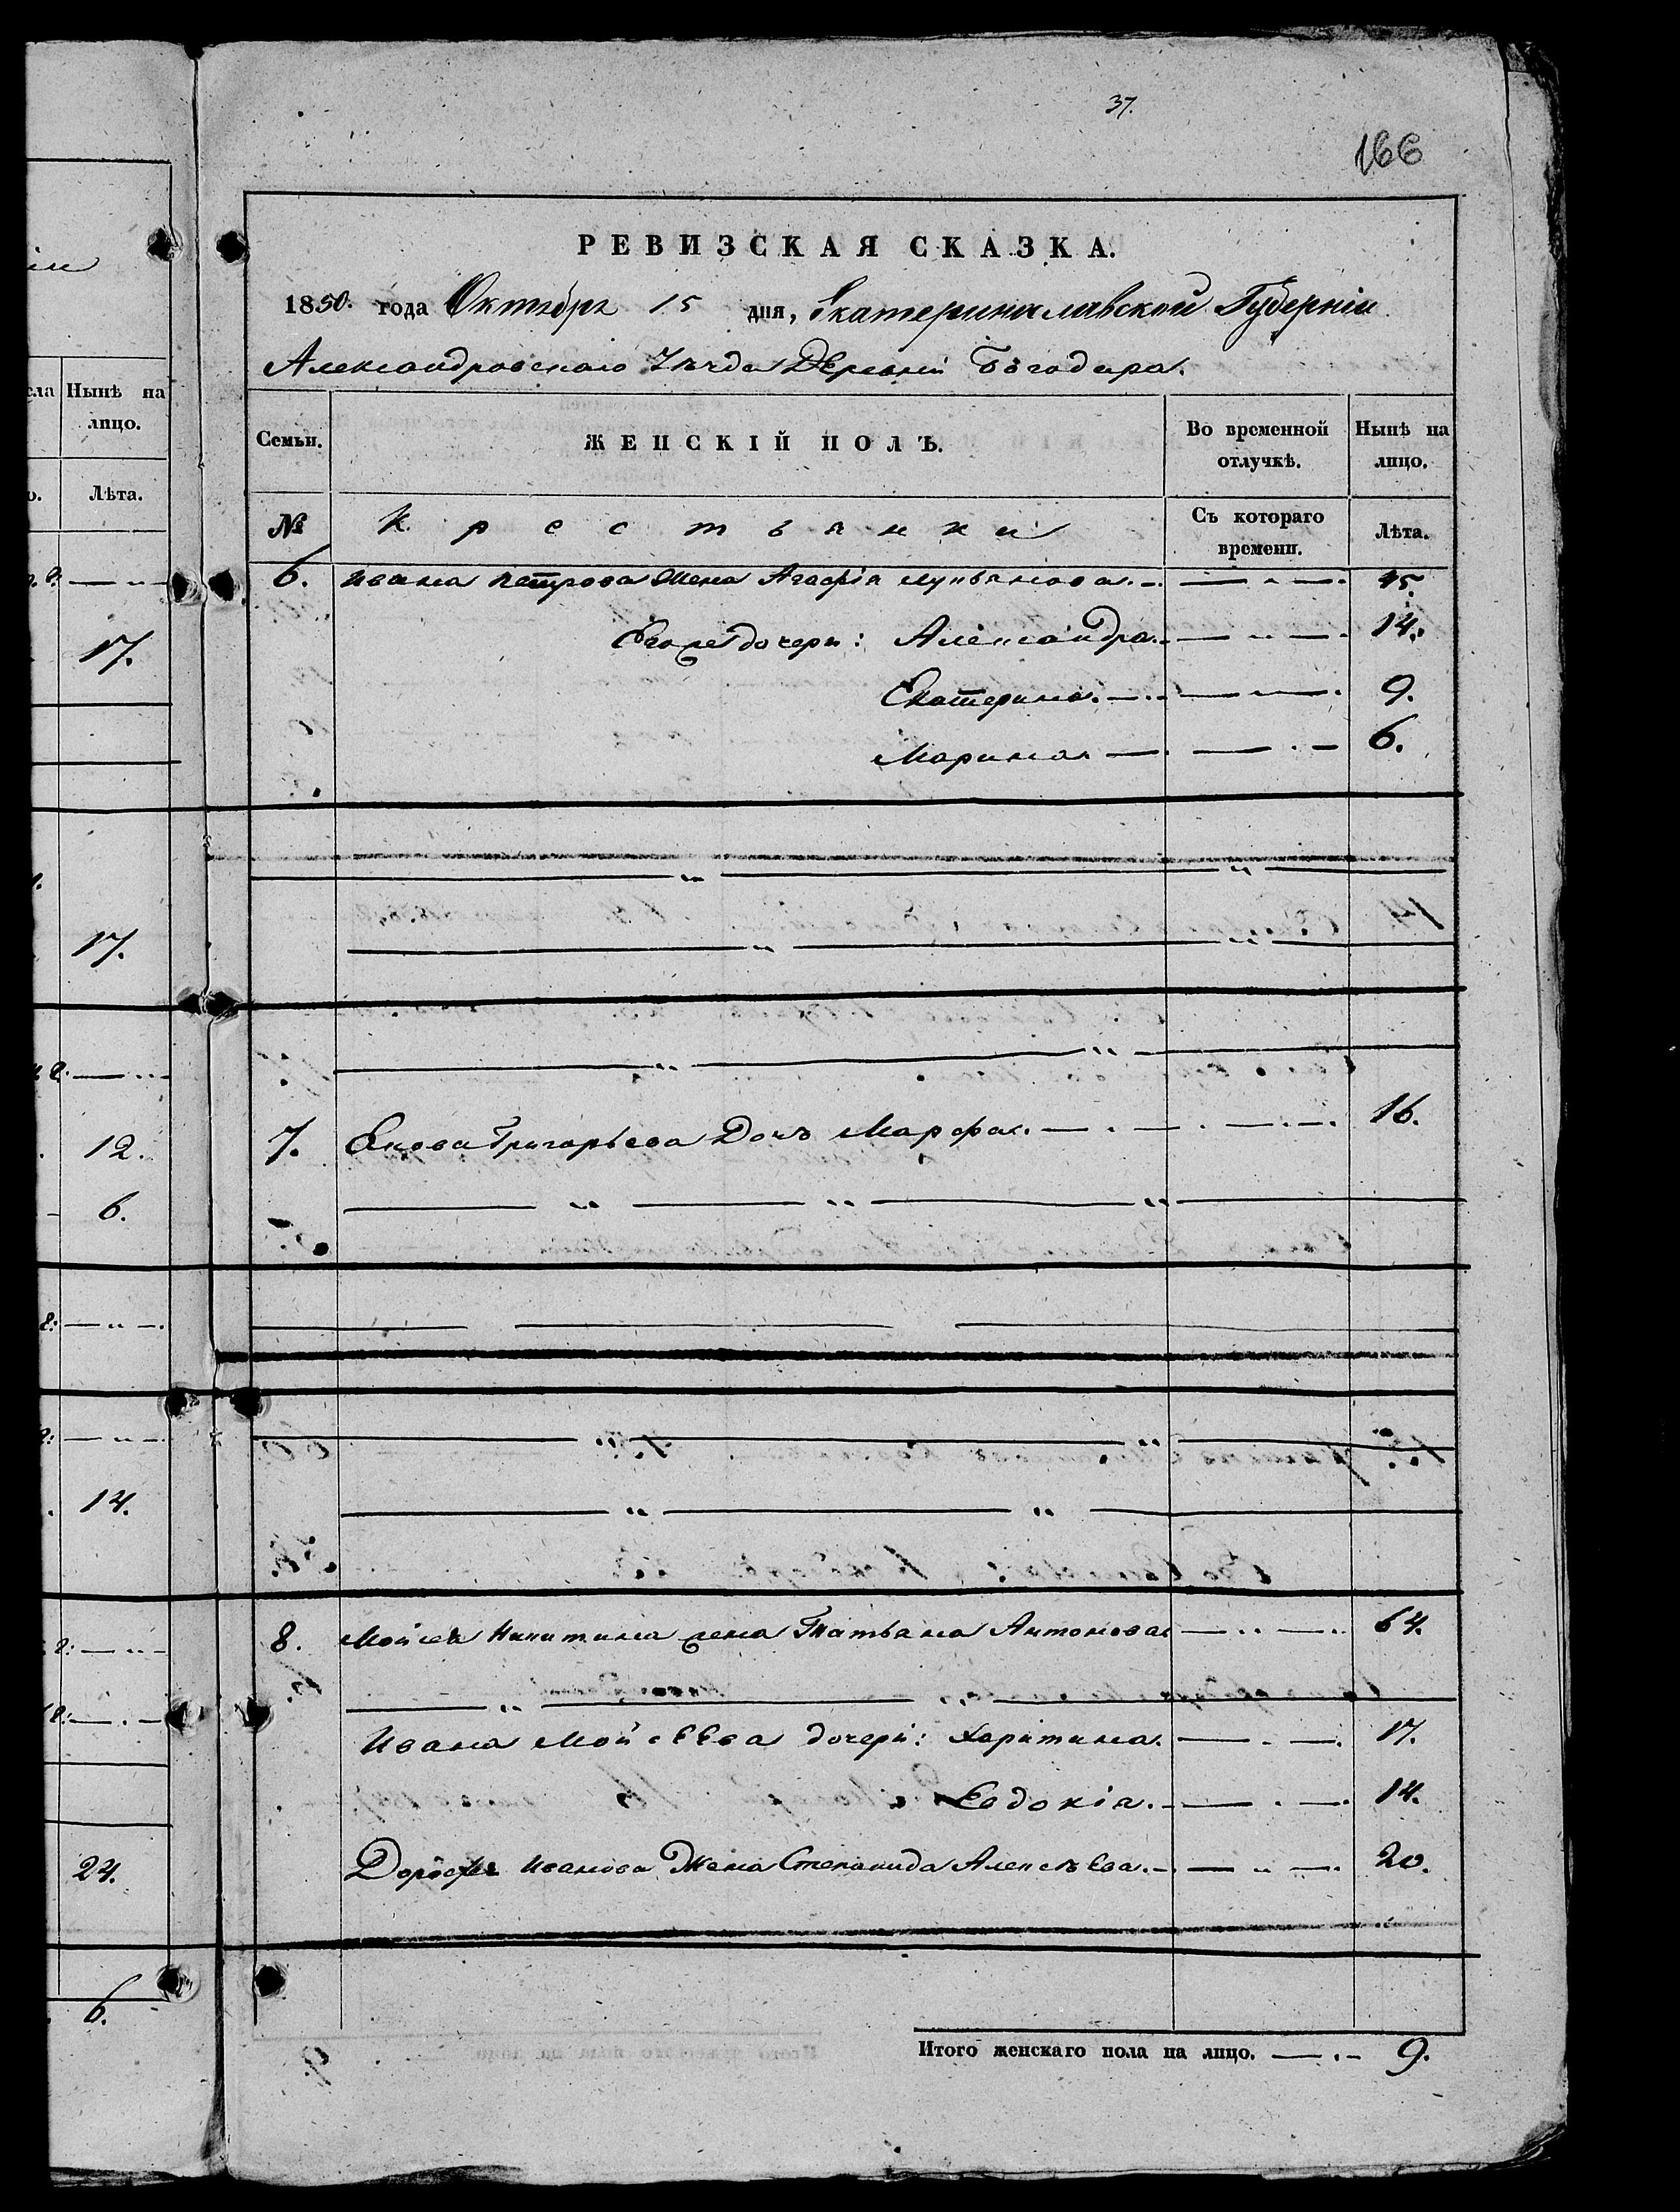 37.
166
РЕВИЗСКАЯ СКАЗКА.
1850. года Октября 15 дня, Екатеринославской Губерніи
Александровскаго Уѣзда Деревни Богодара.
Семьи.
ЖЕНСКІЙ ПОЛЪ.
Во временной отлучкѣ.
Нынѣ на лицо.
№
Крестьянки
Съ котораго времени.
Лѣта.
6. Ивана Петрова Жена Агафія 45.
дочери: Александра. 14.
Екатерина. 9.
Марина 6.
7. Якова Григорьева Дочь Марфа. 16.
8. Мойсея Никитина жена Татьяна Антонова 64.
Ивана Мойсеева дочери: Харитина. 17.
Евдокія. 14.
Дорофея Иванова Жена Степанида Алексѣева. 20.
Итого женскаго пола на лицо. 9.
Нынѣ на лицо.
Лѣта.
17.
17.
12.
6.
14.
24.
6.